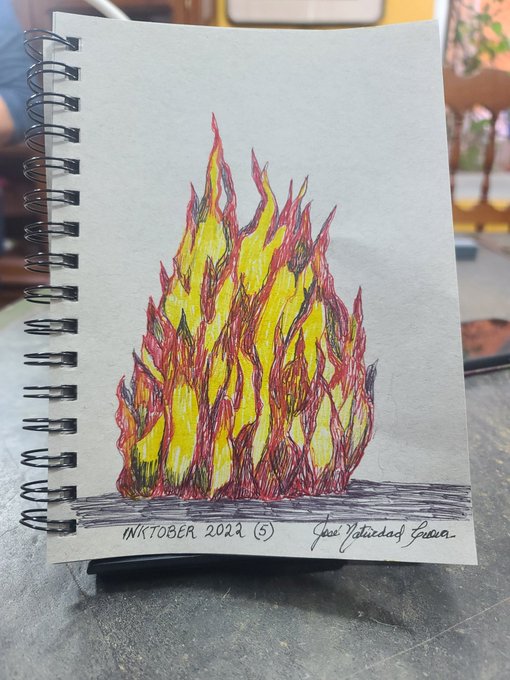 INKTOBER 2022 (5)
José Natividad